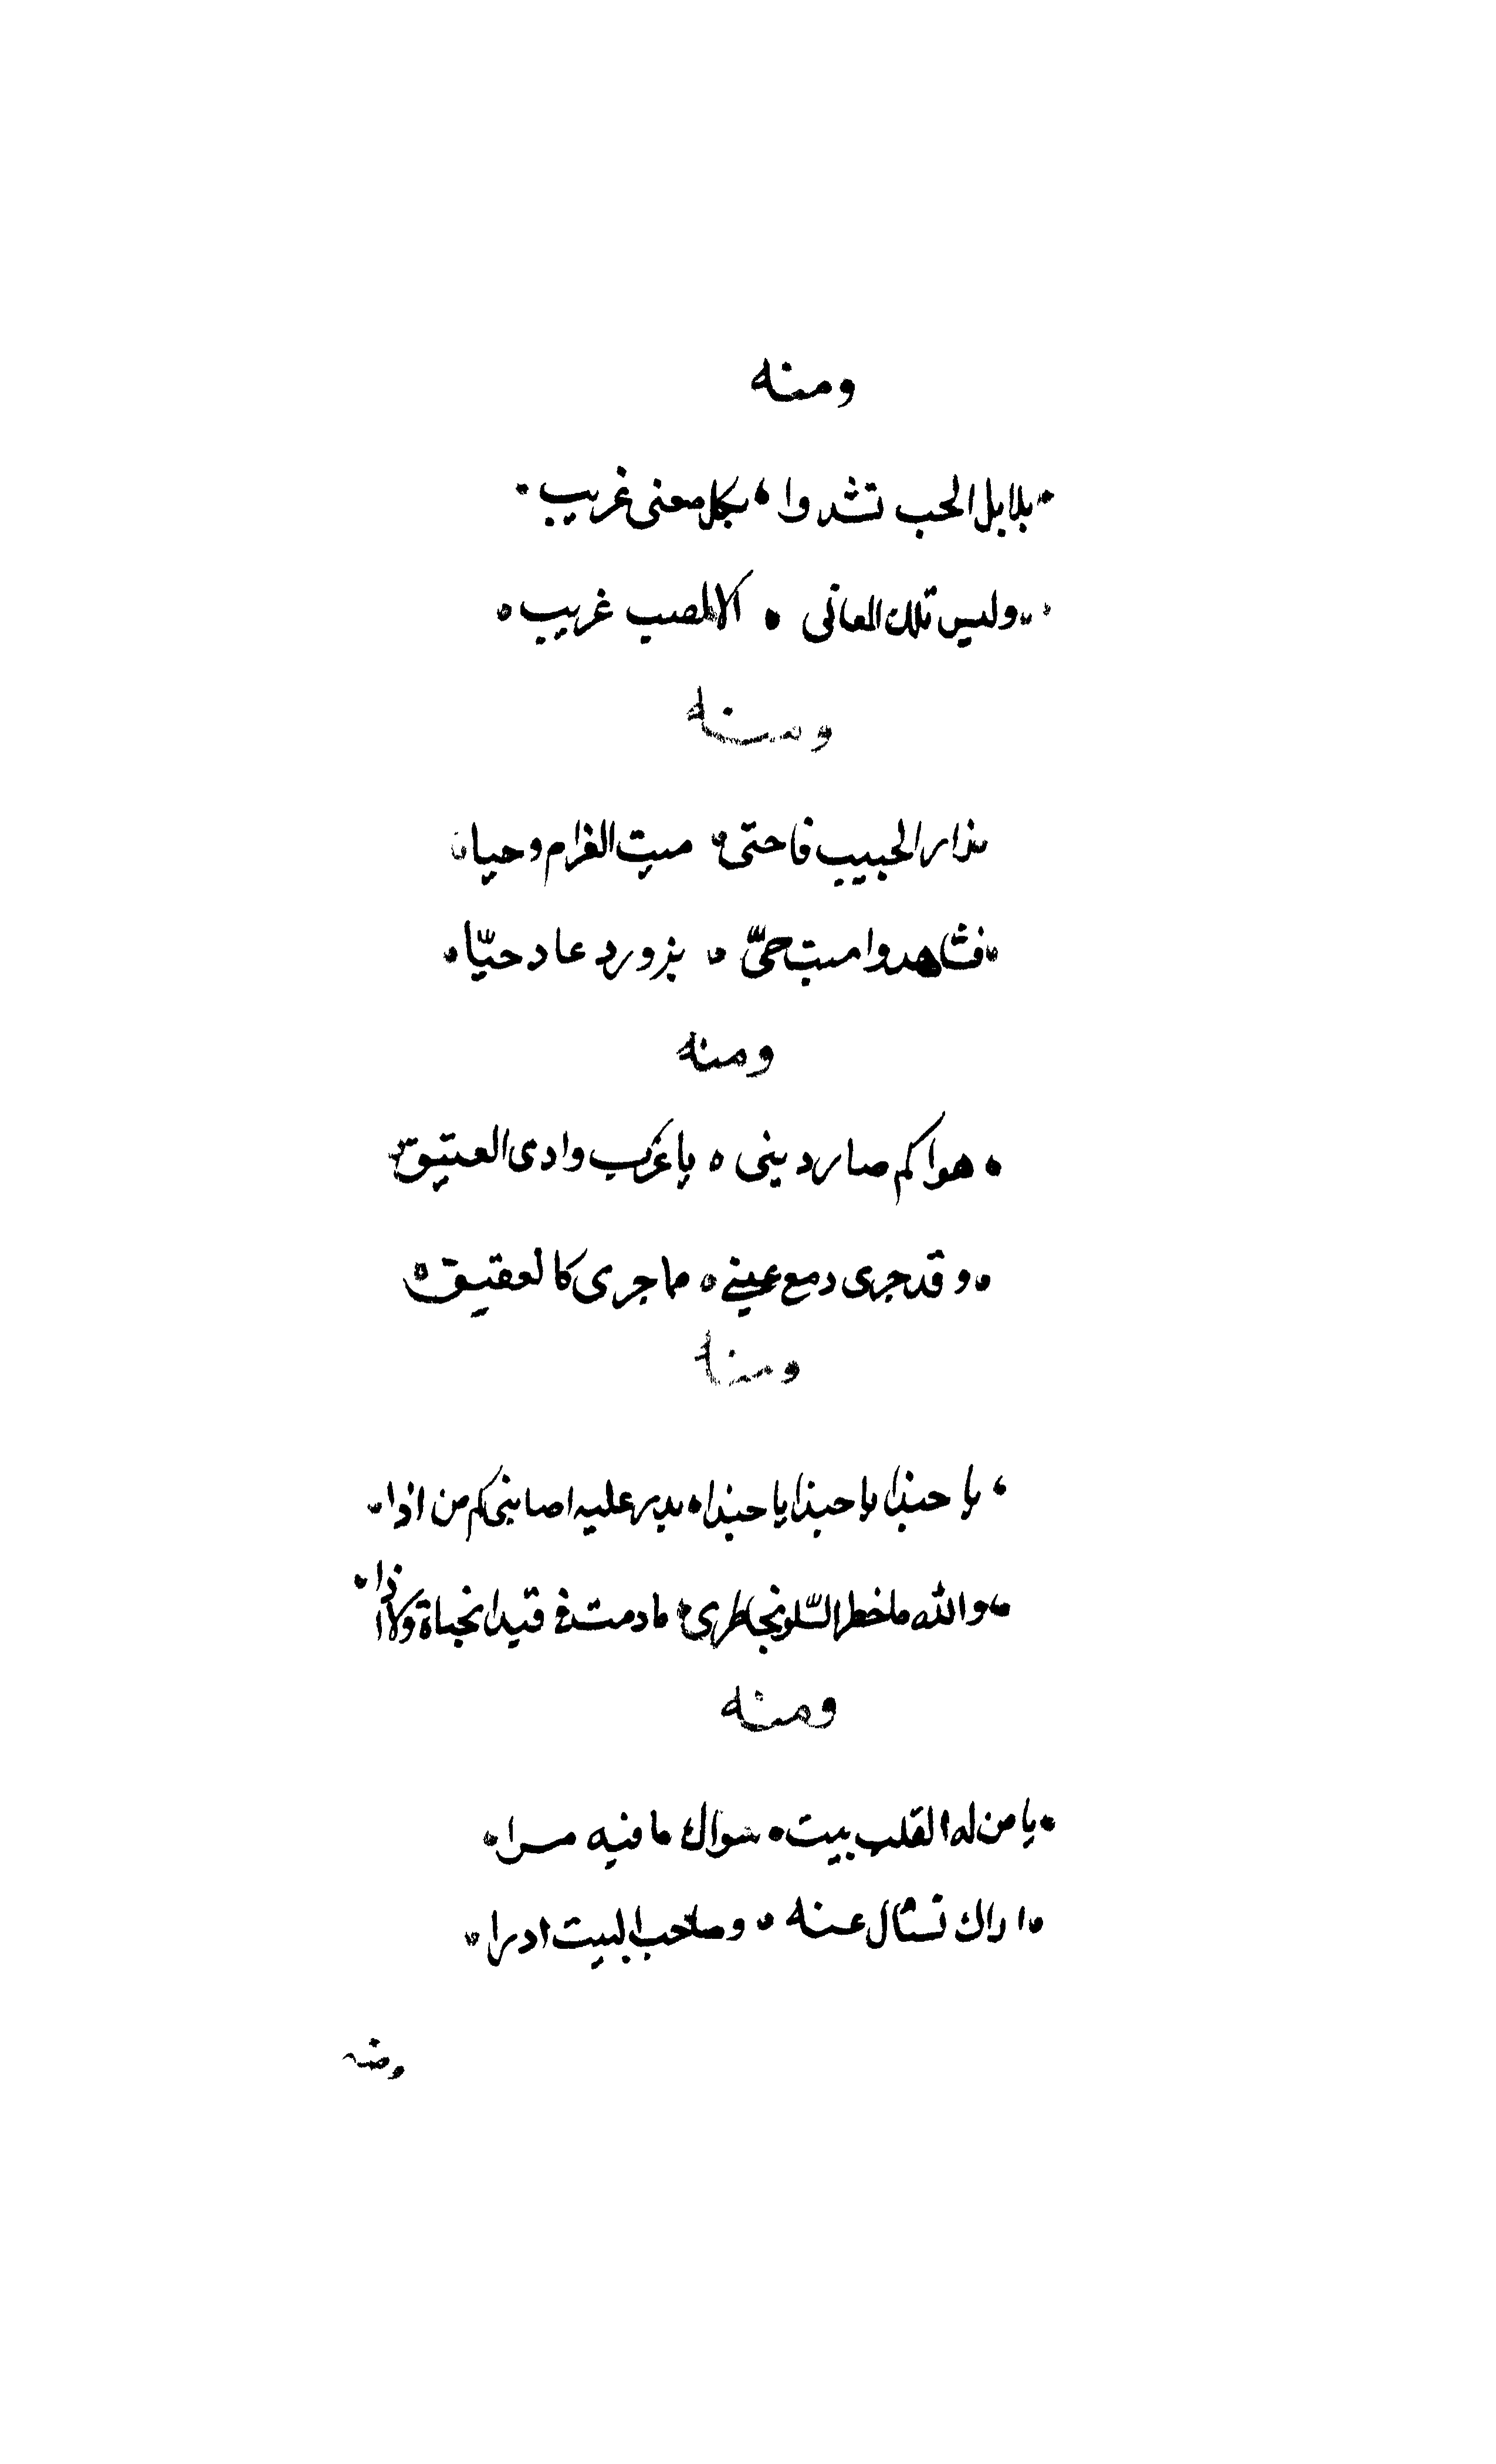 ومنه
بلابل الحب تشدوا بكل معنى غريب
وليس تلك المعانى الا لصب غريب
ومنه
زار الحبيب فاحتى ميت الغرام وحياه
فشاهدوا ميت حىّ بزورد عاد حيّا
ومنه
هواكم صار دينى يا عرب وادى العتيق
وقد جرى دمع عينى مما جرى كالعقيق
ومنه
يا حبذا يا حبذا يا حبذا بدر عليه اصابنى كم من اذا
والله ما خطر السّلو بخاطرى ما دمت فى قيد الحياة ولا اذا
ومنه
يا من له القلب بيت سواك ما فيه مرا
اراك تسأل عنه وصاحب البيت ادرا
ومنه